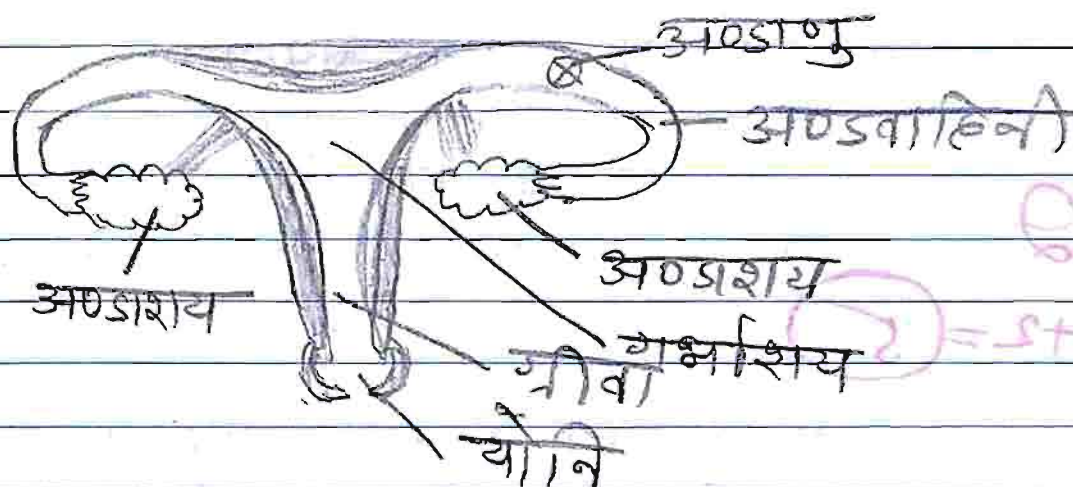 अण्डाणु
अण्डवाहिनी
अण्डाशय
अण्डाशय
गर्भाशय
ग्रीवा
योनि